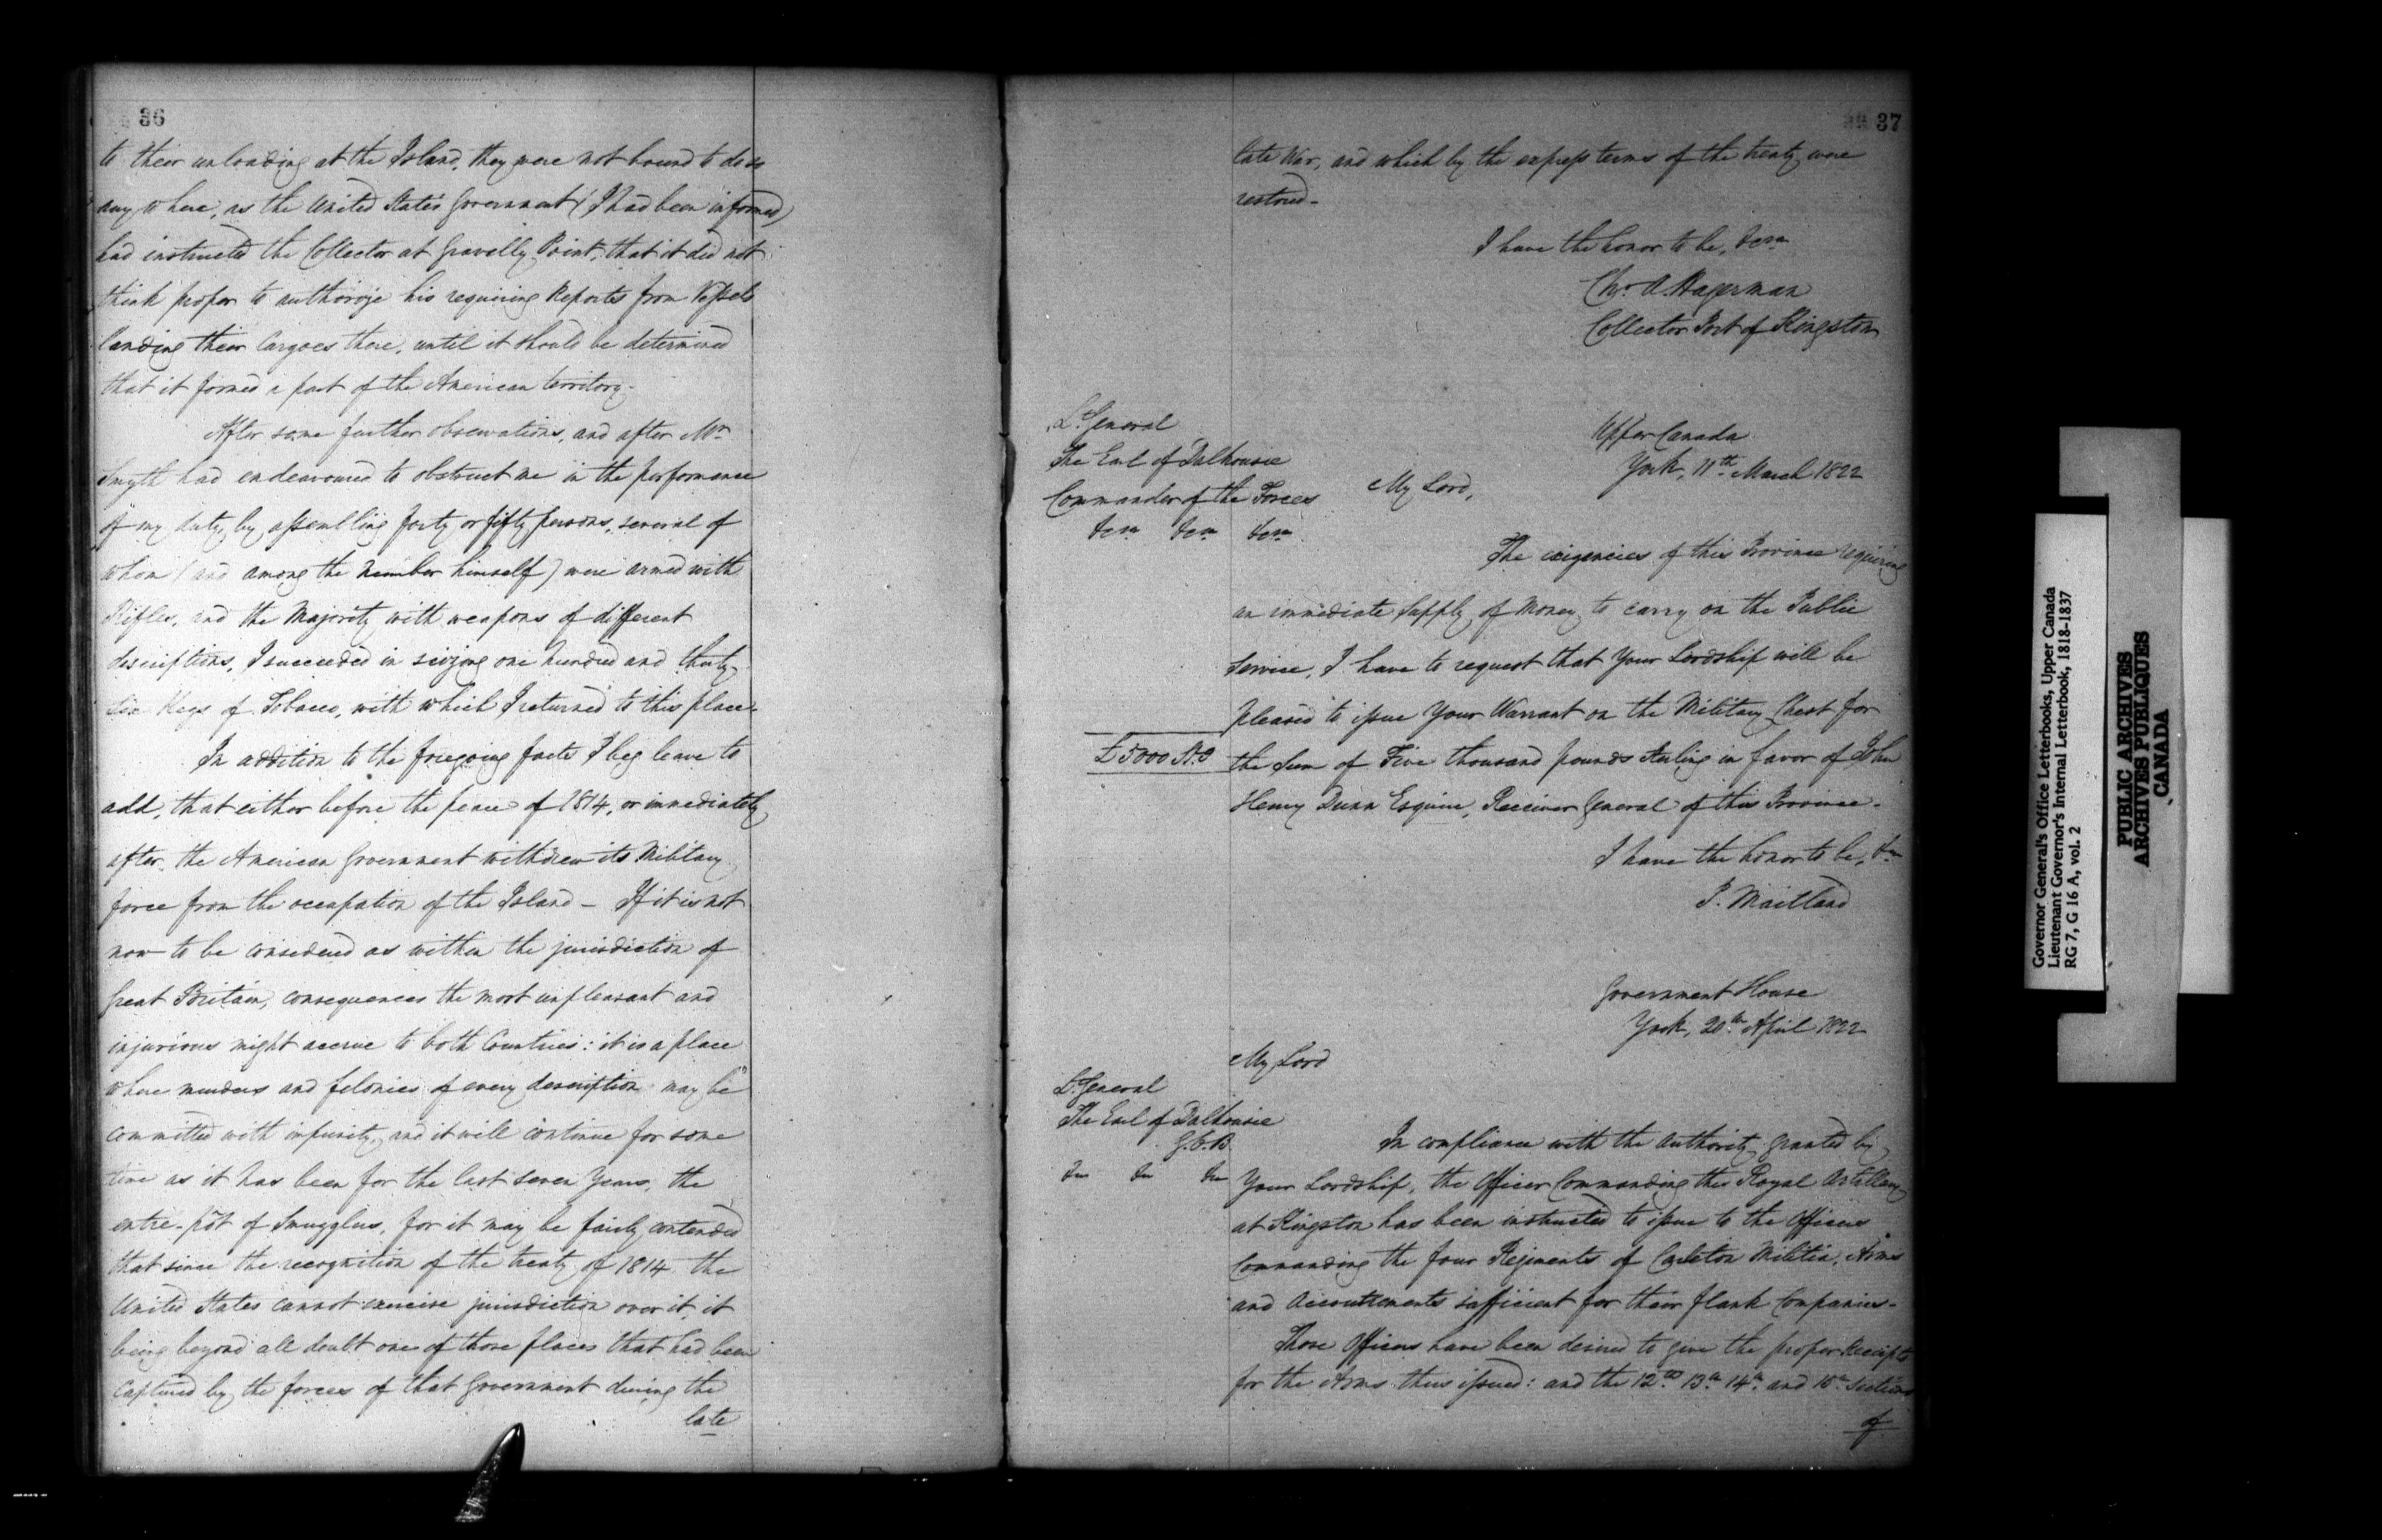 36
to their unloading at the Island, they were not bound to do so
any where, as the United States Government (I had been informed)
had instructed the Collector at Gravelly Point, that it did not
think proper to authorize his requiring Reports from Vessels
landing their Cargoes there, until it should be determined
that it formed a part of the American territory.
After some further observations, and after Mr.
Smyth had endeavoured to obstruct me in the performance
of my duty, by assembling forty or fifty persons, several of
whom (and among the number himself) were armed with
Rifles, and the Majority with weapons of different
descriptions, I succeeded in seizing one hundred and thirty
six Kegs of Tobacco, with which I returned to this place.
In addition to the foregoing facts I beg leave to
add, that either before the peace of 1814, or immediately
after, the American Government withdrew its Military
force from the occupation of the Island – If it is not
now to be considered as within the jurisdiction of
Great Britain, consequences the most unpleasant and
injurious might accrue to both Countries: it is a place
where murders and felonies of every description may be
committed with impunity, and it will continue for some
time as it has been for the last seven Years, the
entre-pôt of Smugglers, for it may be fairly contended
that since the recognition of the treaty of 1814 the
United States cannot exercise jurisdiction over it, it
being beyond all doubt one of those places that had been
Captured by the forces of that Government during the
late
37
late War, and which by the express terms of the treaty were
restored –
I have the honor to be, &ca
Chr. A. Hagerman
Collector Port of Kingston
Lt. General
The Earl of Dalhousie
Commander of the Forces
&ca &ca &ca
Upper Canada
York, 11th March 1822
My Lord,
The exigencies of this Province requiring
an immediate supply of Money to carry on the Public
Service, I have to request that Your Lordship will be
pleased to issue Your Warrant on the Military Chest for
£5000 Stg
the Sum of Five thousand pounds sterling in favor of John
Henry Dunn Esquire, Receiver General of this Province.
I have the honor to be, &ca
P. Maitland
Government House
York, 20th April 1822
My Lord
Lt. General
The Earl of Dalhousie
G.C.B.
&c &c &c
In compliance with the authority granted by
Your Lordship, the Officer Commanding the Royal Artillery
at Kingston has been instructed to issue to the Officers
Commanding the four Regiments of Carleton Militia, Arms
and Accoutrements sufficient for their flank Companies –
Those Officers have been desired to give the proper Receipts
for the Arms thus issued: and the 12th 13th 14th and 15th Sections
of
Governor General's Office Letterbooks, Upper Canada
Lieutenant Governor's Internal Letterbook, 1818-1837
RG 7, G 16 A, vol. 2
PUBLIC ARCHIVES
ARCHIVES PUBLIQUES
CANADA